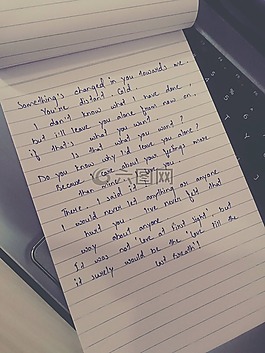 Something's changed in you towards me.
You're distant, cold.
I don't know what I have done,
but I'll leave you alone from now on,
if that's what you want.
Is that what you want?
Do you know why I'd leave you alone?
Because I care about your feelings more
than mine. you
There, I said it.
I would never let anything or anyone
hurt you. I've never felt that
way about anyone.
It was not 'love at first sight', but
it surely would be the 'love till the
last breath'!